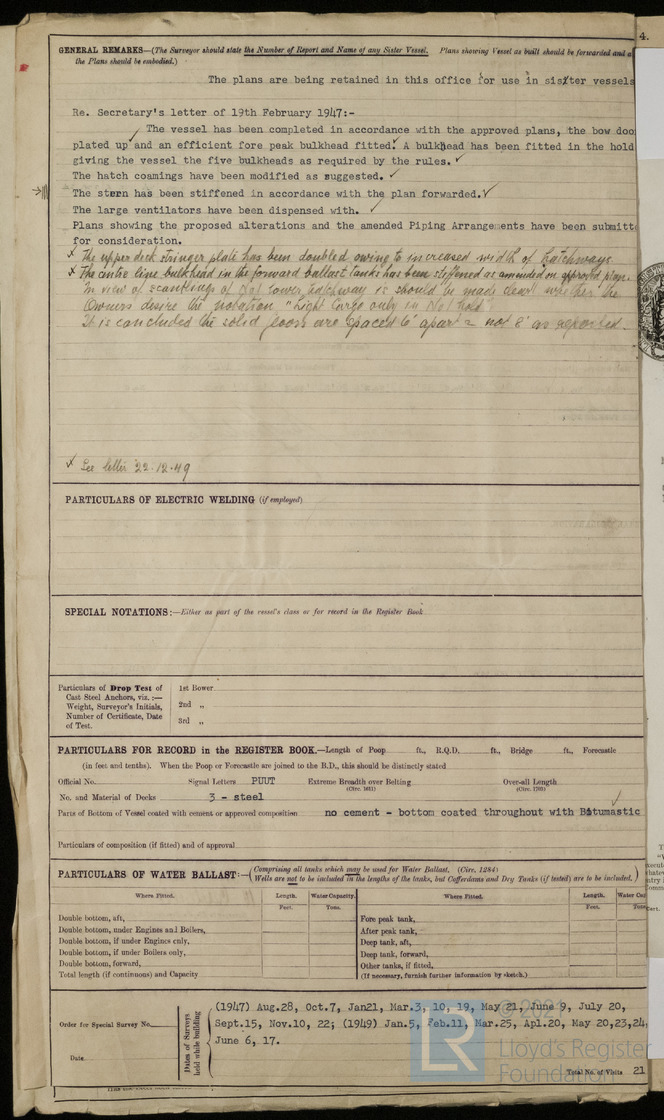 4.
GENERAL REMARKS—(The Surveyor should state the Number of Report and Name of any Sister Vessel. Plans showing Vessel as built should be forwarded and a
the Plans should be embodied.)
The plans are being retained in this office for use in sister vessels
Re. Secretary's letter of 19th February 1947:-
The vessel has been completed in accordance with the approved plans, the bow doo
plated up and an efficient fore peak bulkhead fitted. A bulkhead has been fitted in the hold
giving the vessel the five bulkheads as required by the rules.
The hatch coamings have been modified as suggested.
The stern has been stiffened in accordance with the plan forwarded.
The large ventilators have been dispensed with.
Plans showing the proposed alterations and the amended Piping Arrangements have been submitt
for consideration.
x The upper deck stringer plate has been doubled owing to increased width of hatchways.
x The centre line bulkhead in the forward ballast tanks has been stiffened as amended on approved plan.
In view of scantlings of No1 lower hatchway it should be made clear whether the
Owners desire the notation "Light Cargo only in No1 hold"
It is concluded the solid floors are spaced 6' apart & not 8' as reported.
x See letter 22.12.49
PARTICULARS OF ELECTRIC WELDING (if employed)
SPECIAL NOTATIONS:—Either as part of the vessel's class or for record in the Register Book
Particulars of Drop Test of
Cast Steel Anchors, viz. :—
Weight, Surveyor's Initials,
Number of Certificate, Date
of Test.
1st Bower
2nd „
3rd „
PARTICULARS FOR RECORD in the REGISTER BOOK.—Length of Poop ft., R.Q.D. ft., Bridge ft., Forecastle
(in feet and tenths). When the Poop or Forecastle are joined to the B.D., this should be distinctly stated
Official No. Signal Letters PUUT Extreme Breadth over Belting Over-all Length
(Circ. 1611) (Circ. 1703)
No. and Material of Decks 3 - steel
Parts of Bottom of Vessel coated with cement or approved composition no cement - bottom coated throughout with Bitumastic
Particulars of composition (if fitted) and of approval
PARTICULARS OF WATER BALLAST:—(Comprising all tanks which may be used for Water Ballast. (Circ. 1284)
Wells are not to be included in the lengths of the tanks, but Cofferdams and Dry Tanks (if tested) are to be included.)
Where Fitted. Length. Water Capacity. Where Fitted. Length. Water Ca
Feet. Tons. Feet. Tons
Double bottom, aft,
Double bottom, under Engines and Boilers,
Double bottom, if under Engines only,
Double bottom, if under Boilers only,
Double bottom, forward,
Total length (if continuous) and Capacity
Fore peak tank,
After peak tank,
Deep tank, aft,
Deep tank, forward,
Other tanks, if fitted,
(If necessary, furnish further information by sketch.)
Order for Special Survey No.
Date
Dates of Surveys
held while building
(1947) Aug.28, Oct.7, Jan21, Mar.3, 10, 19, May 21, June 9, July 20,
Sept.15, Nov.10, 22; (1949) Jan.5, Feb.11, Mar.25, Apl.20, May 20,23,24,
June 6, 17.
Total No. of Visits 21
© 2021
LR
Lloyd's Register
Foundation